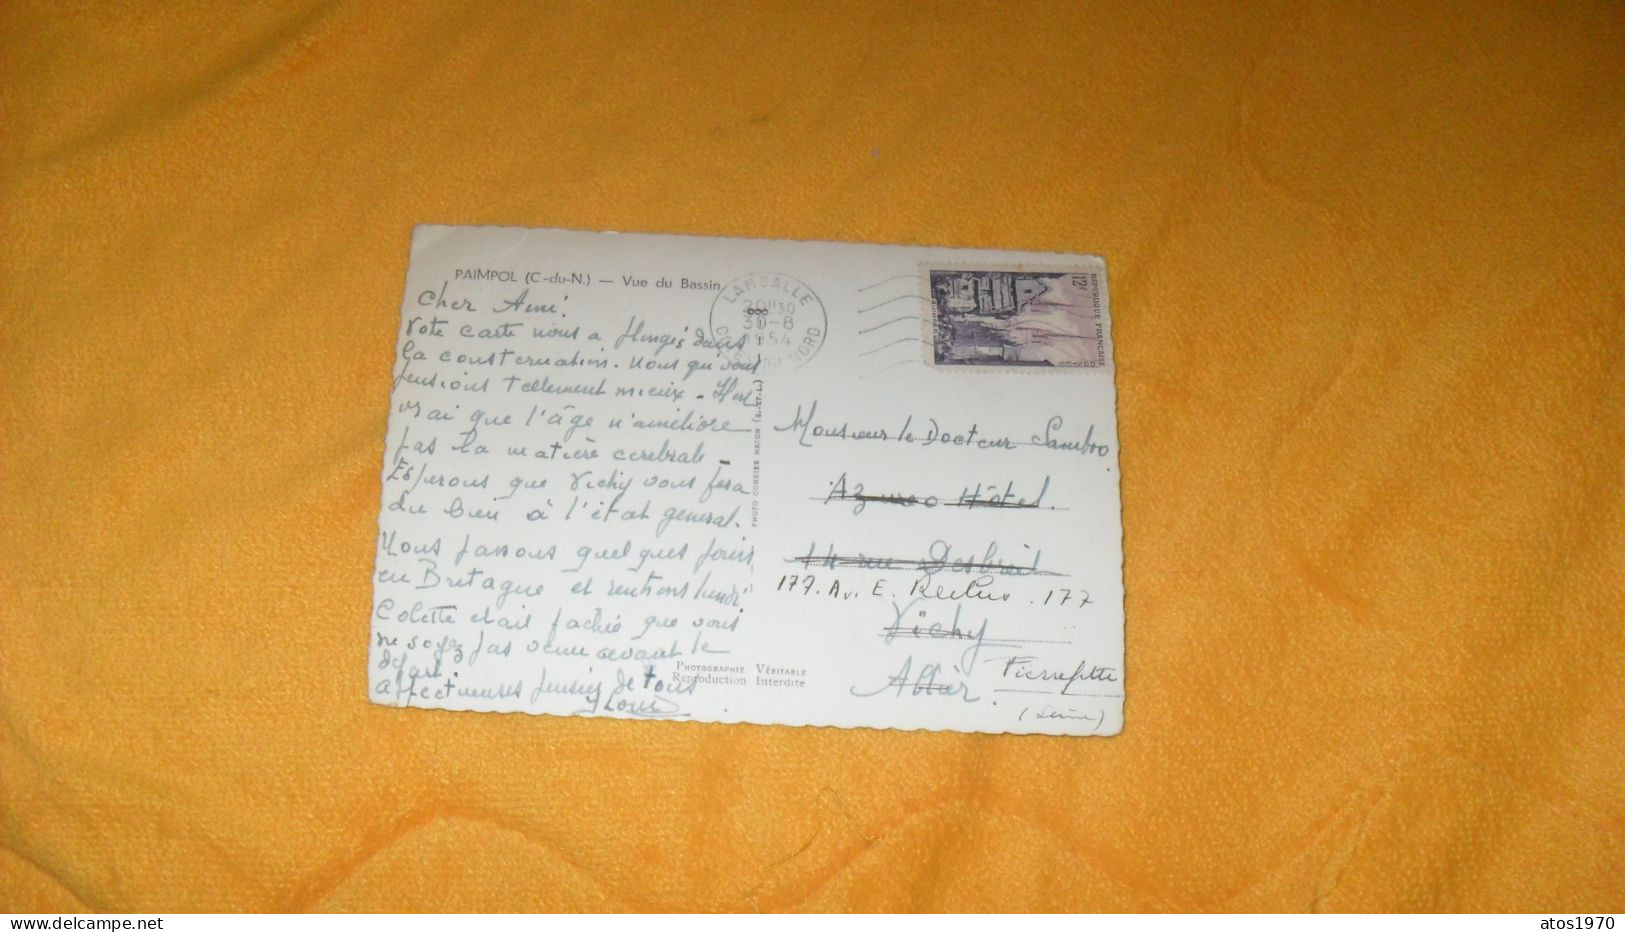 PAIMPOL (C.-du-N.) — Vue du Bassin
Cher Ami!
Votre carte nous a plongés dans
la consternation. Nous qui vous
pensions tellement mieux -
vrai que l'âge n'améliore
pas la matière cérébrale -
Espérons que Vichy vous fera
du bien à l'état general.
Nous passons quelques jours
en Bretagne et rentrons lundi
Colette etait fachée que vous
ne soyez pas venu avant le
départ.
Affectueuses pensées de tous
PHOTO COMBIER MACON (S.-ET-L.)
PHOTOGRAPHIE VÉRITABLE
Reproduction Interdite
LAMBALLE
20H30
30-8
1954
COTES DU NORD
12F
REPUBLIQUE FRANCAISE
QUIMPER
POSTES
Monsieur le Docteur Sambro
Hôtel.
14 rue Desbrest
177. Av. E. Reclus. 177
Vichy
Allier.
Pierrefitte
(Seine)
atos1970